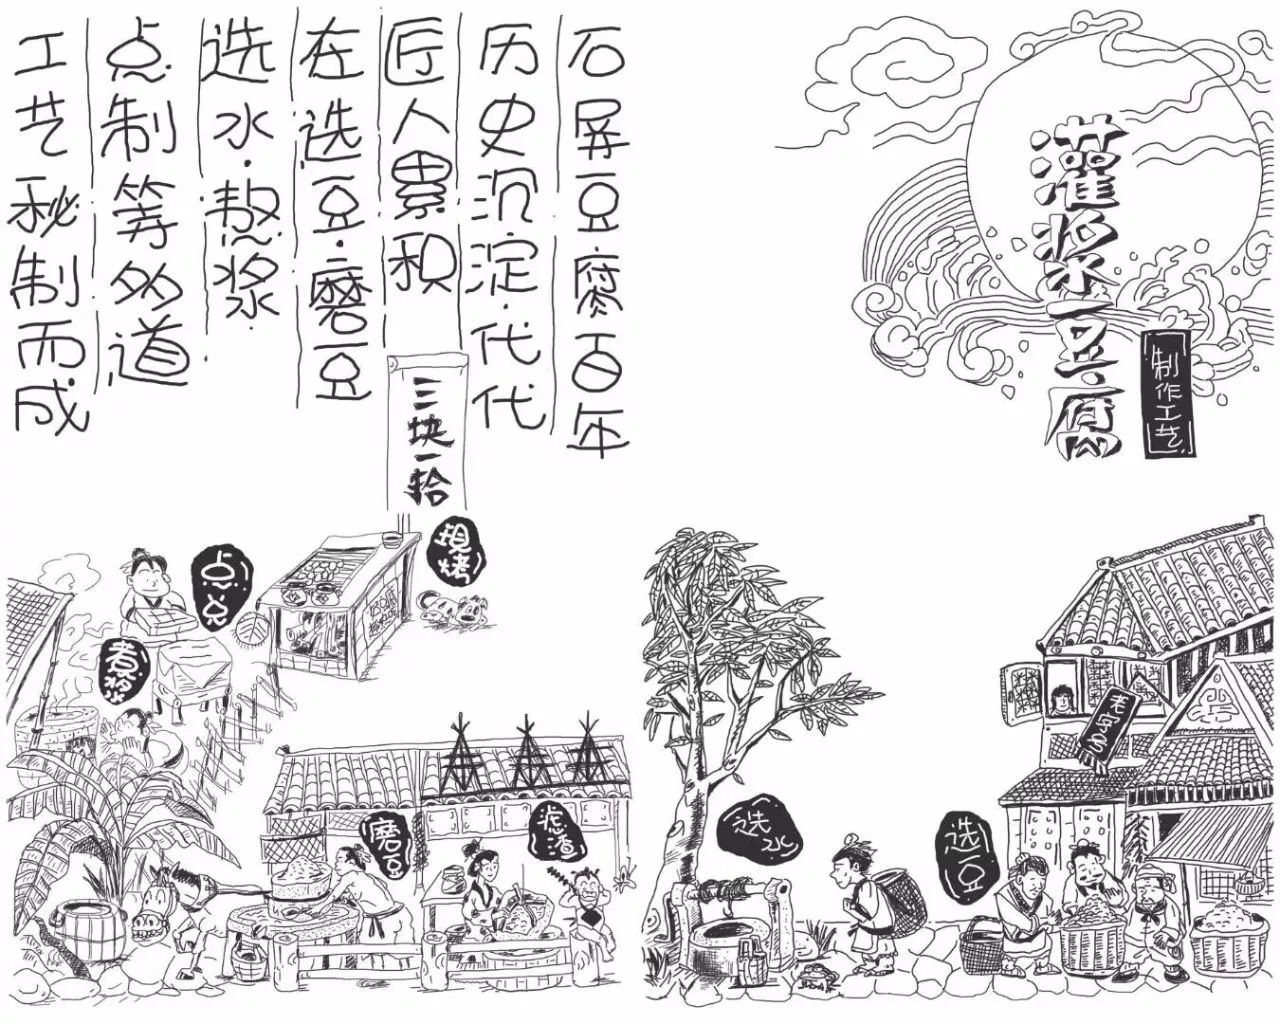 灌浆豆腐
制作工艺
石屏豆腐百年
历史沉淀.代代
匠人累积
在选豆.磨豆
选水.熬浆
点制等多道
工艺秘制而成
三块一拾
現烤
点豆
煮浆
磨豆
滤渣
选水
选豆
老字号